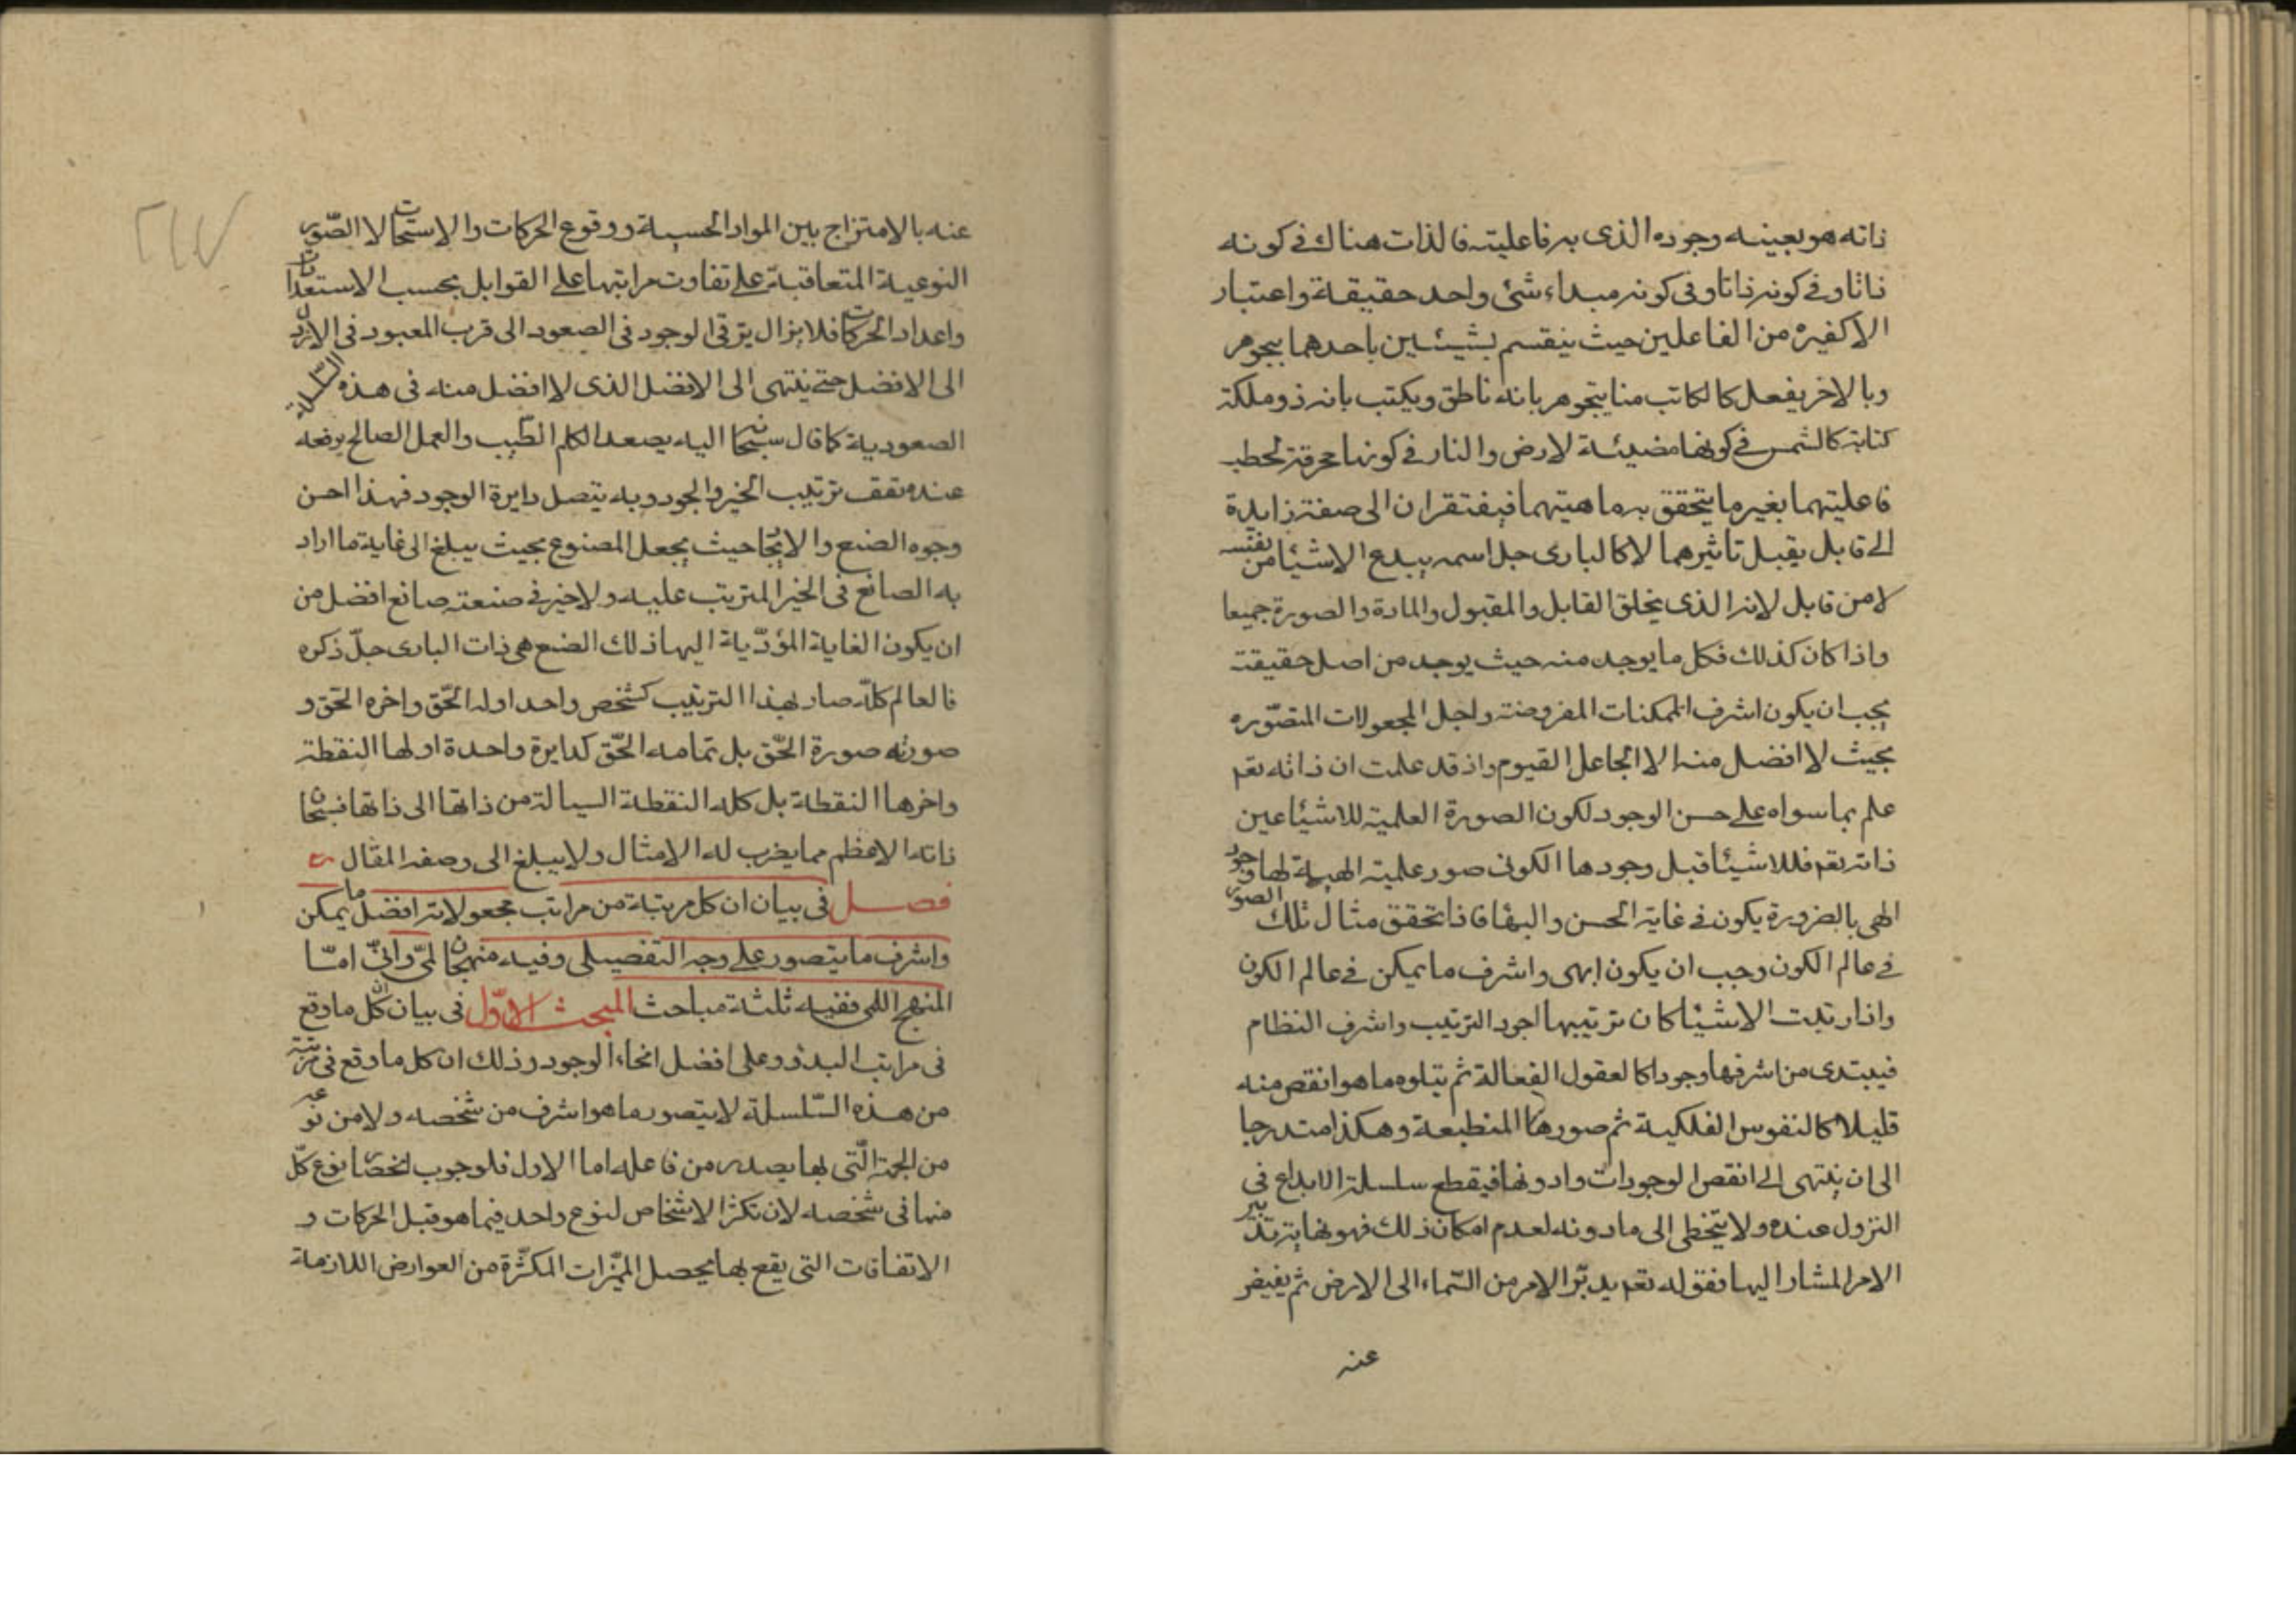 ذاته هو بعينه وجوده الذى به فاعليته فالذات هناك فى كونه
ذاتا وفى كونه ذاتا وفى كونه مبداء شئ واحد حقيقة واعتبار
الا كغيره من الفاعلين حيث ينقسم بشيئين باحدهما يتجوهر
وبالاخر يفعل كالكاتب منا يتجوهر بانه ناطق ويكتب بانه ذو ملكة
كتابة كالشمس فى كونها مضيئة لارض والنار فى كونها محرقة لحطب
فاعليتهما بغير ما يتحقق به ماهيتهما فيفتقران الى صفة زايدة
الى قابل يقبل تاثيرهما لا كالبارى جل اسمه يبدع الاشيا من نفسه
لا من قابل لانه الذى يخلق القابل والمقبول والمادة والصورة جميعا
واذا كان كذلك فكل ما يوجد منه حيث يوجد من اصل حقيقته
يجب ان يكون اشرف الممكنات المفروضة واجل المجعولات المتصوّره
بحيث لا افضل منه الا الجاعل القيوم واذ قد علمت ان ذاته تعم
علم بما سواه على حسن الوجود لكون الصورة العلمية للاشيا عين
ذاته تعم فللاشيا قبل وجودها الكونى صور علمية الهية لها وجود
الهى بالضرورة يكون فى غاية الحسن والبها فاذا تحقق مثال تلك الصور
فى عالم الكون وجب ان يكون ابهى واشرف ما يمكن فى عالم الكون
واذا رتبت الاشيا كان ترتيبها اجود الترتيب واشرف النظام
فيبتدى من اشرفها وجودا كالعقول الفعالة ثم يتلوه ما هو انقص منه
قليلا كالنفوس الفلكية ثم صورها المنطبعة وهكذا متدرجا
الى ان ينتهى الى انقص الوجودات وادونها فيقطع سلسلة الابداع فى
النزول عنده ولا يتخطى الى ما دونه لعدم امكان ذلك فهو نهاية تدبير
الامر المشار اليها فقوله تعم يدبّر الامر من السّماء الى الارض ثم يفيض
عنه
عنه بالامتزاج بين المواد الحسية ووقوع الحركات والاستحالات الصّور
النوعية المتعاقبة على تفاوت مراتبها على القوابل بحسب الاستعدادات
واعداد الحركات فلا يزال يترقى الوجود فى الصعود الى قرب المعبود فى الارذل
الى الافضل حتى ينتهى الى الافضل الذى لا افضل منه فى هذه السّلسلة
الصعودية كما قال سبحانه اليه يصعد الكلم الطيّب والعمل الصالح يرفعه
عنده تقف ترتيب الخير والجود وبه يتصل دايرة الوجود فهذا احسن
وجوه الصنع والايجاد حيث يجعل المصنوع بحيث يبلغ الى غاية ما اراد
به الصانع فى الخير المترتب عليه ولا خير فى صنعته صانع افضل من
ان يكون الغاية المؤدّية اليها ذلك الصنع هى ذات البارى جلّ ذكره
فالعالم كلّه صار بهذا الترتيب كشخص واحد اوله الحّق واخره الحّق و
صورته صورة الحّق بل تمامه الحّق كدايرة واحدة اولها النقطة
واخرها النقطة بل كله النقطة السيالة من ذاتها الى ذاتها فسبحان
ذاته الاعظم مما يضرب له الامثال ولا يبلغ الى وصفه المقال
فصل فى بيان ان كل مرتبة من مراتب مجعولاته افضل ما يمكن
واشرف ما يتصور على وجه التفصيلى وفيه منهجان لمىّ وانىّ امّا
المنهج اللمى ففيه ثلثة مباحث المبحث الاوّل فى بيان ان كل ما وقع
فى مراتب البدؤ وعلى افضل انحاء الوجود وذلك ان كل ما وقع فى مرتبة
من هذه السّلسلة لا يتصور ما هو اشرف من شخصه ولا من نوعه
من الجهة الّتى بها يصدر من فاعله اما الاول فلوجوب انحصار نوع كلّ
منها فى شخصه لان تكثر الاشخاص لنوع واحد فيما هو قبل الحركات و
الاتفاقات التى يقع بها يحصل المميّزات المكثّرة من العوارض اللازمة